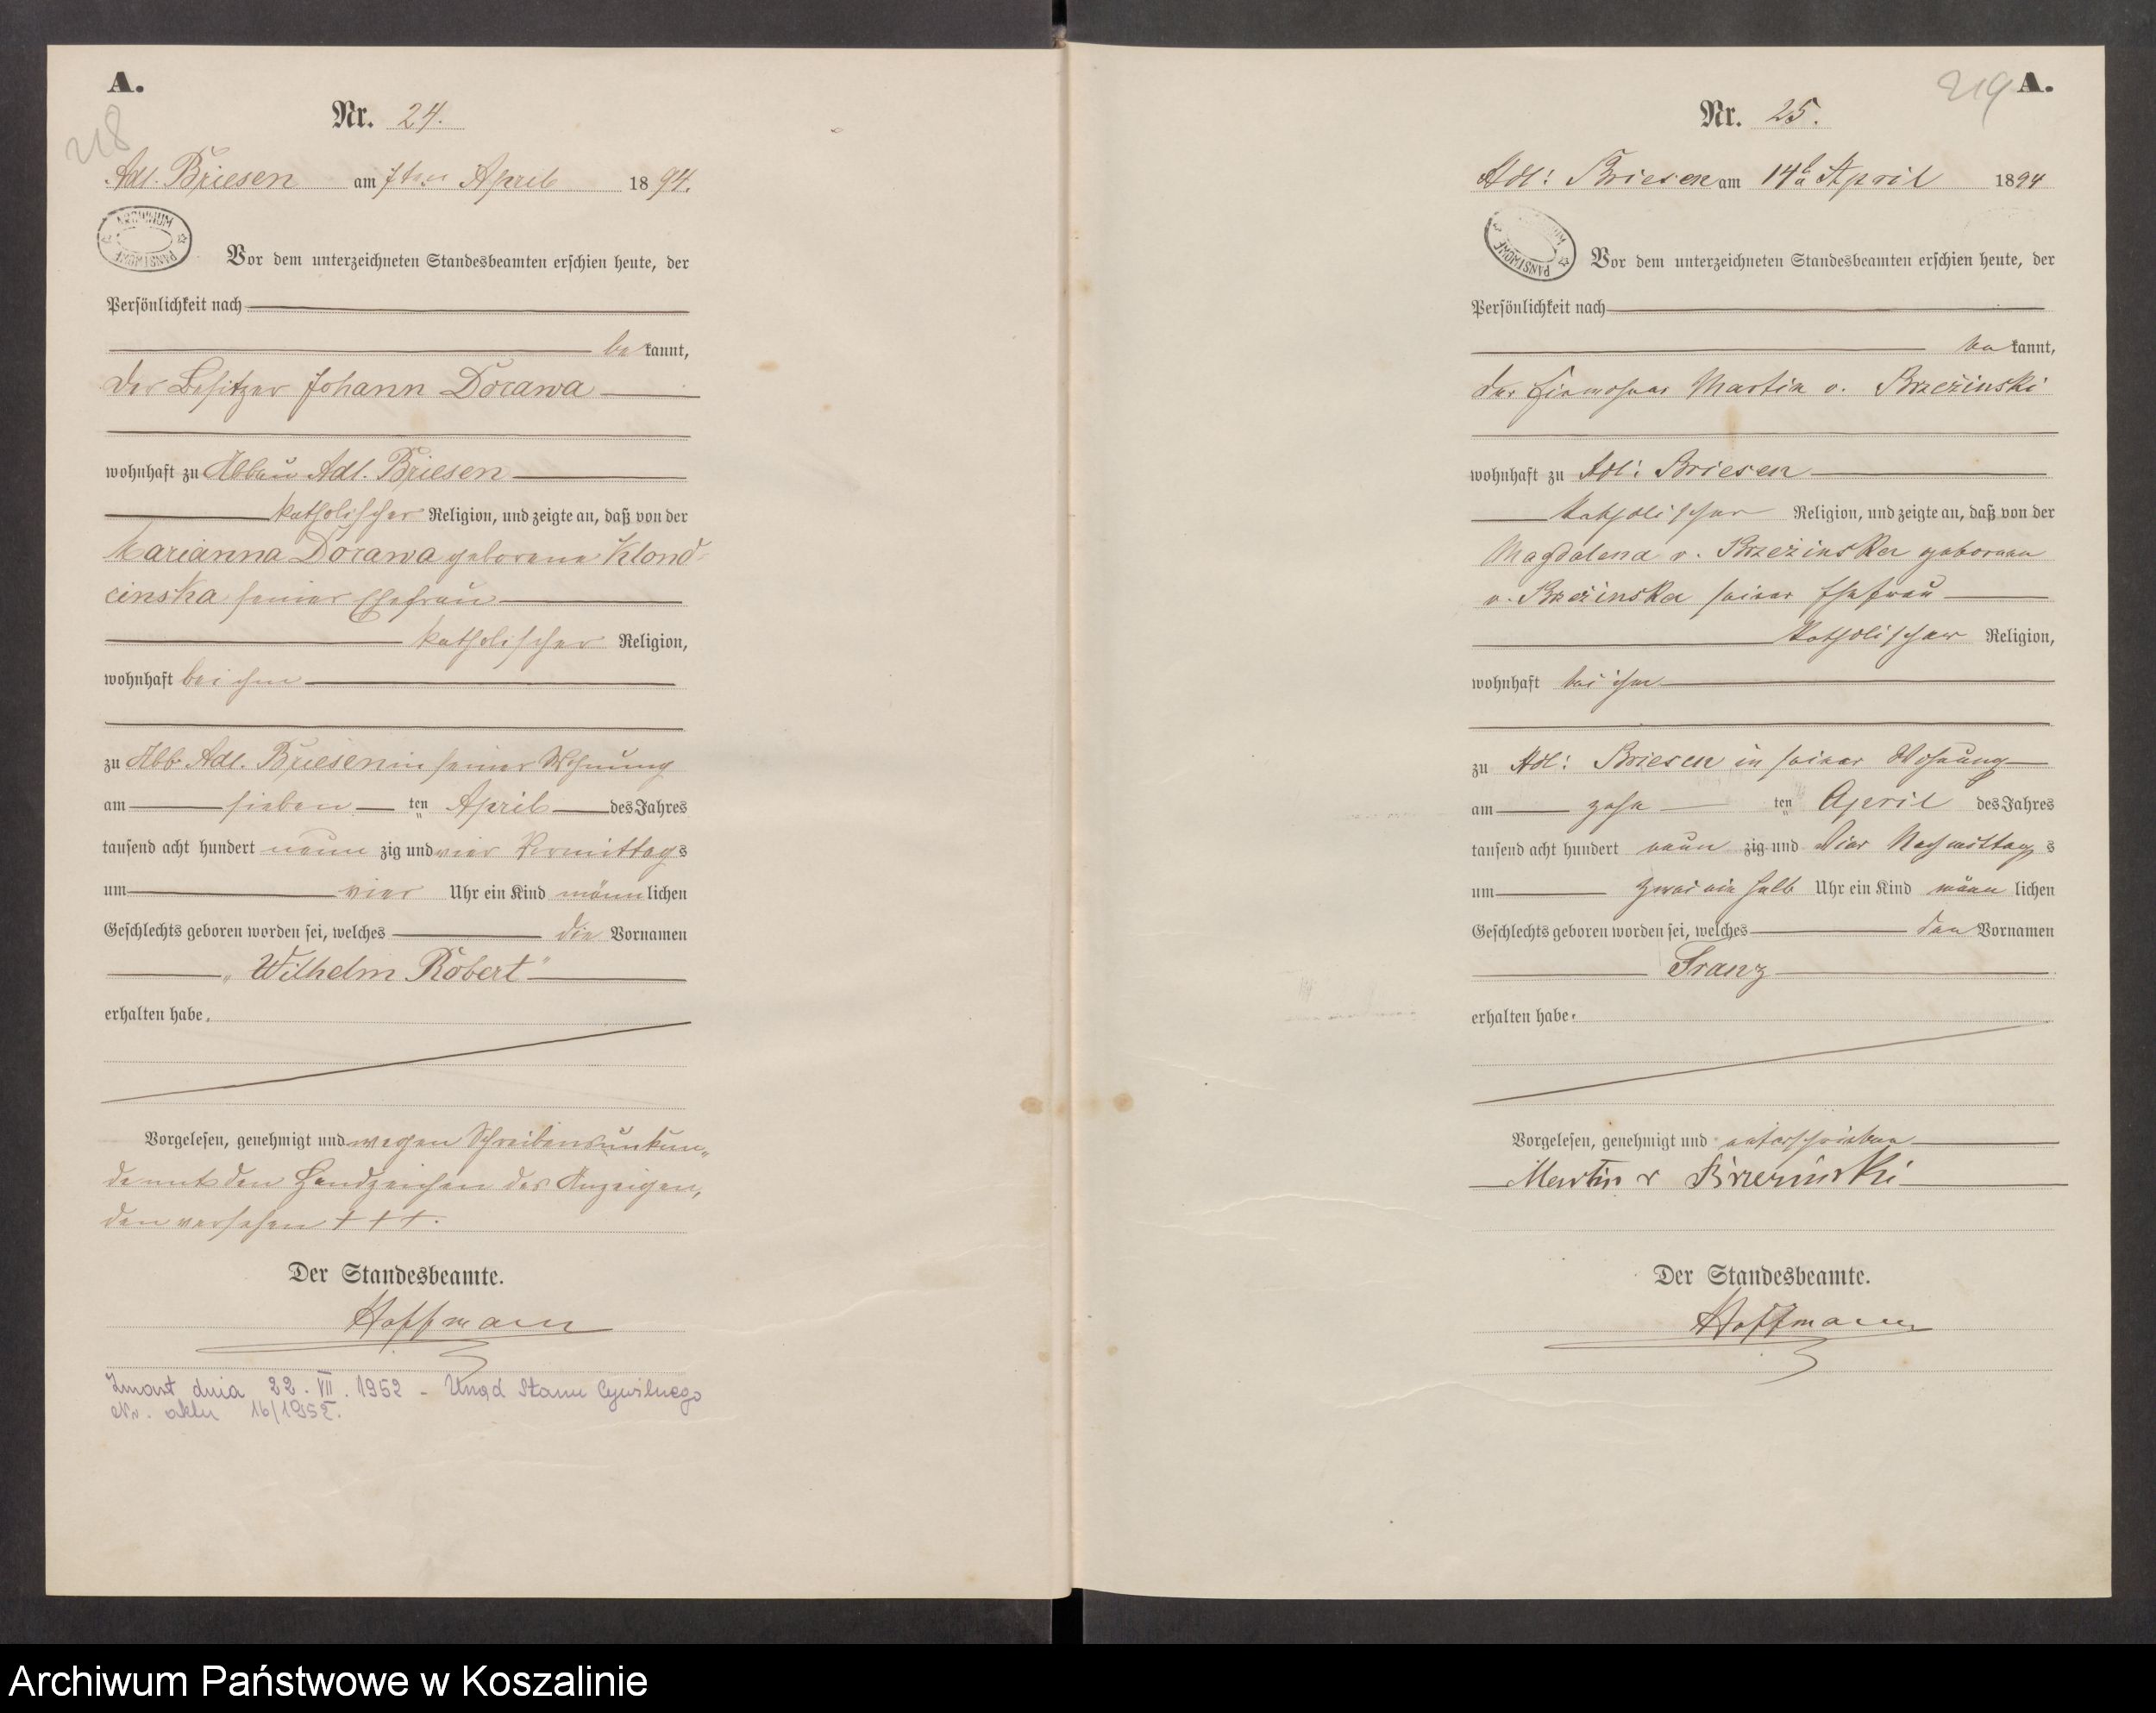 A.
218
Nr. 24.
Adl. Briesen am 7ten April 1894.
ARCHIWUM PAŃSTWOWE
Vor dem unterzeichneten Standesbeamten erschien heute, der
Persönlichkeit nach
be kannt,
der Besitzer Johann Dorawa
wohnhaft zu Abbau Adl. Briesen
katholischer Religion, und zeigte an, daß von der
Marianna Dorawa geborene Klond-
cinska seiner Ehefrau
katholischer Religion,
wohnhaft bei ihm
zu Abb. Adl. Briesen in seiner Wohnung
am sieben ten April des Jahres
tausend acht hundert neun zig und vier Vormittags
um vier Uhr ein Kind männlichen
Geschlechts geboren worden sei, welches die Vornamen
„Wilhelm Robert"
erhalten habe.
Vorgelesen, genehmigt und wegen Schreibensunkun„
de mit den Handzeichen des Anzeigen„
den versehen + + +.
Der Standesbeamte.
Hoffmann
Zmarł dnia 22. VII. 1952 - Urząd Stanu Cywilnego
Nr. aktu 16/1952.
219 A.
Nr. 25.
Adl: Briesen am 14t April 1894
ARCHIWUM PAŃSTWOWE
Vor dem unterzeichneten Standesbeamten erschien heute, der
Persönlichkeit nach
be kannt,
der Einwohner Martin v. Brzezinski
wohnhaft zu Adl: Briesen
katholischer Religion, und zeigte an, daß von der
Magdalena v. Brzezinska geborenen
v. Brzezinska seiner Ehefrau
katholischer Religion,
wohnhaft bei ihm
zu Adl: Briesen in seiner Wohnung
am zehn ten April des Jahres
tausend acht hundert neun zig und Vier Nachmittags
um zwei ein halb Uhr ein Kind männ lichen
Geschlechts geboren worden sei, welches den Vornamen
Franz
erhalten habe.
Vorgelesen, genehmigt und unterschrieben
Martin v Brzezinski
Der Standesbeamte.
Hoffmann
Archiwum Państwowe w Koszalinie